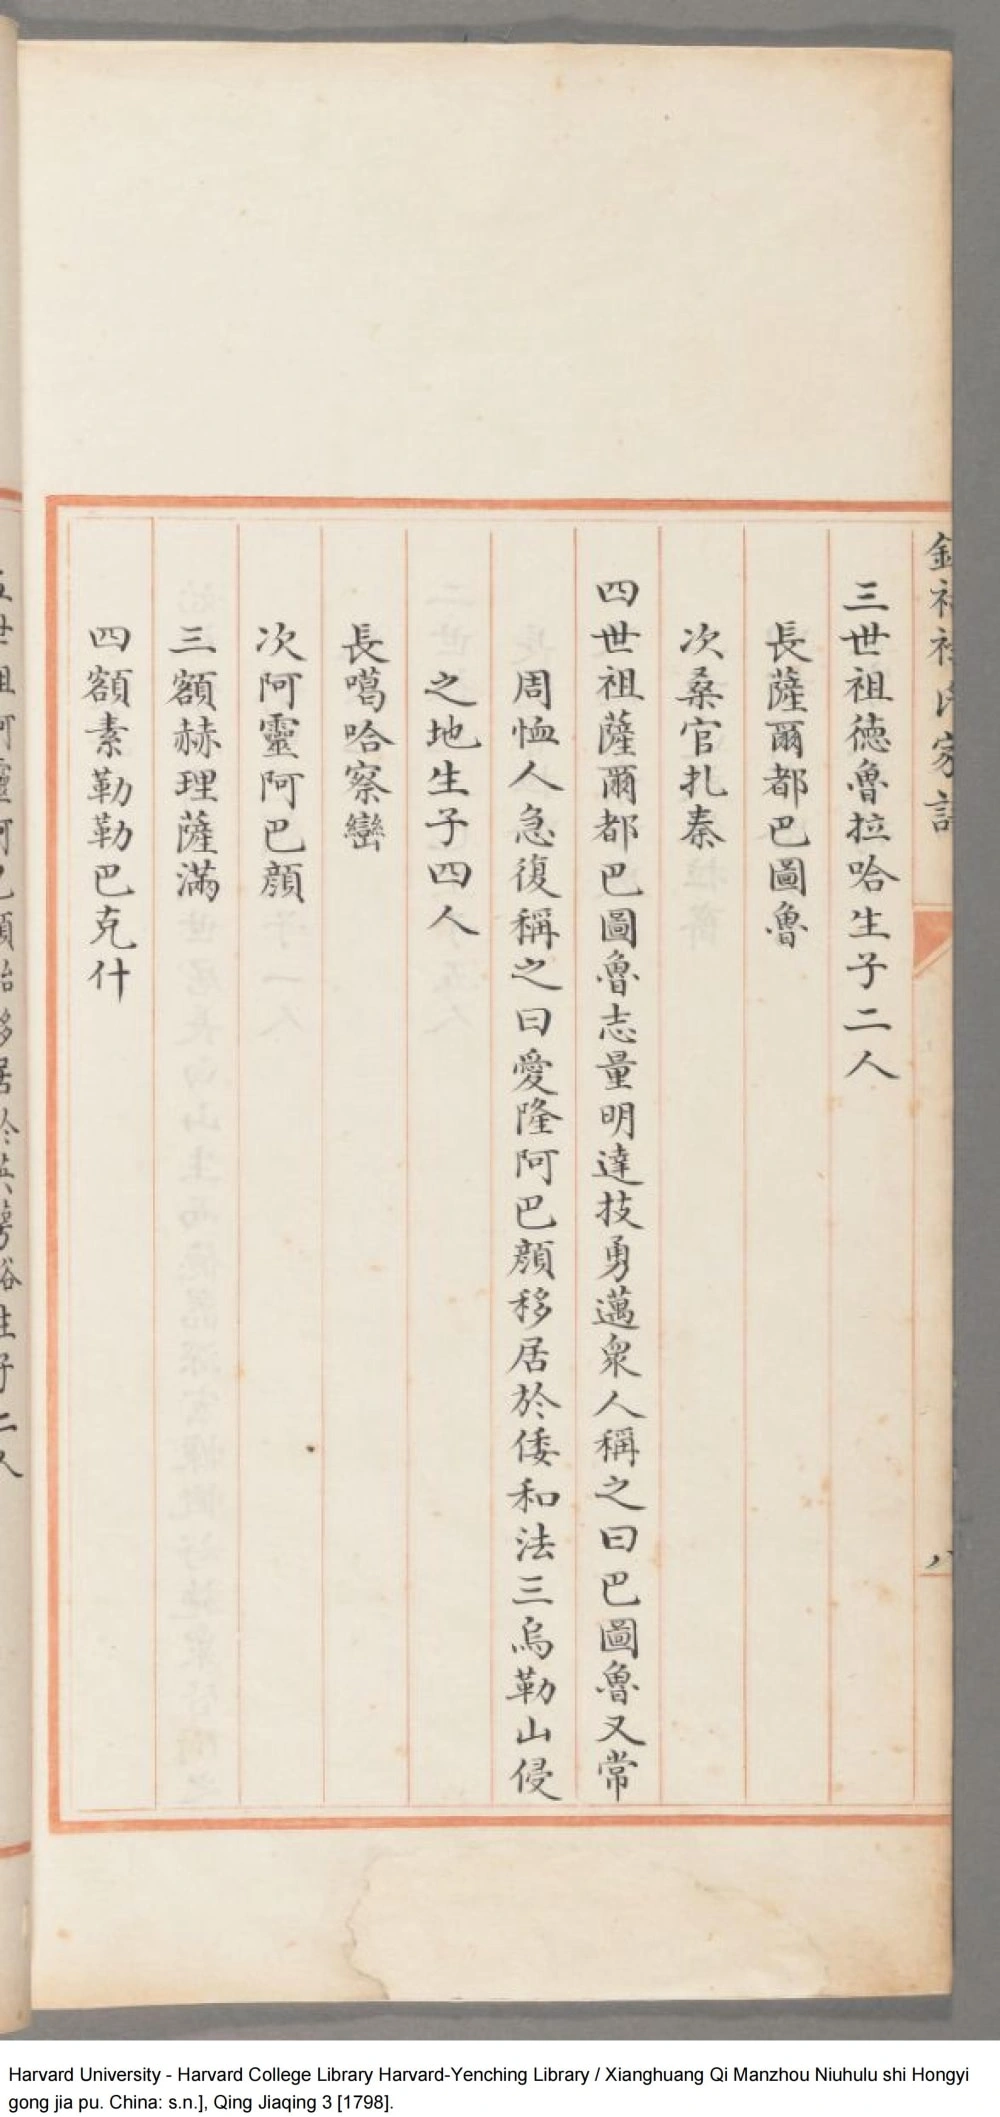 三世祖德魯拉哈生子二人
長薩爾都巴圖魯
次桑官扎秦
四世祖薩爾都巴圖魯志量明達技勇邁衆人稱之曰巴圖魯又常
周恤人急復稱之曰愛隆阿巴顔移居於倭和法三烏勒山侵
之地生子四人
長噶哈察巒
次阿靈阿巴顔
三額赫理薩滿
四額素勒勒巴克什
Harvard University - Harvard College Library Harvard-Yenching Library / Xianghuang Qi Manzhou Niuhulu shi Hongyi
gong jia pu. China: s.n.], Qing Jiaqing 3 [1798].